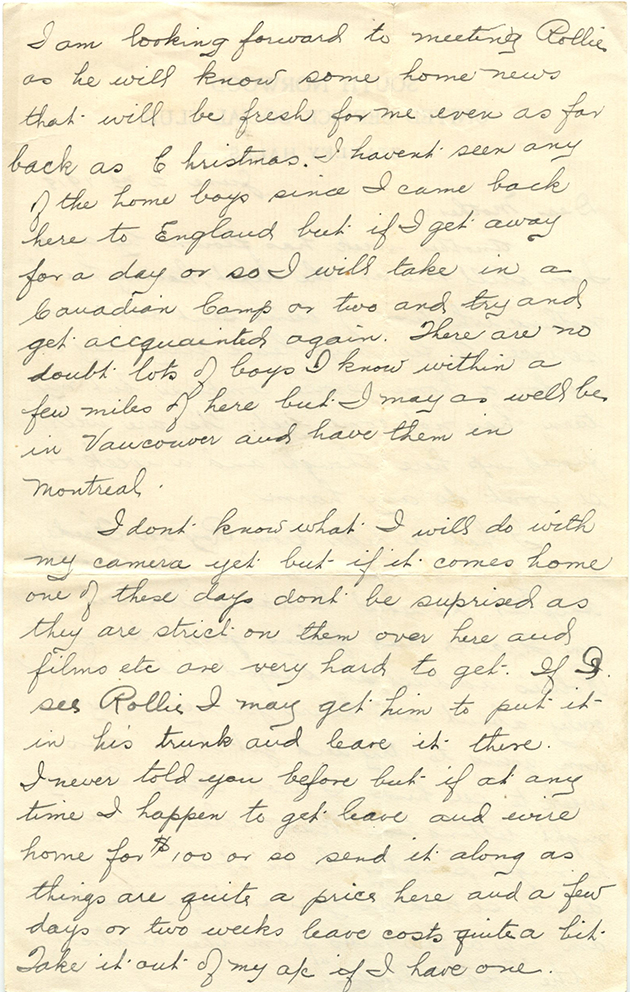 I am looking forward to meeting Rollie
as he will know some home news
that will be fresh for me even as far
back as Christmas. I havent seen any
of the home boys since I came back
here to England but if I get away
for a day or so I will take in a
Canadian Camp or two and try and
get accquainted again. There are no
doubt lots of boys I know within a
few miles of here but I may as well be
in Vancouver and have them in
Montreal.
I dont know what I will do with
my camera yet but if it comes home
one of these days dont be suprised as
they are strict on them over here and
films etc are very hard to get. If I
see Rollie I may get him to put it
in his trunk and leave it there.
I never told you before but if at any
time I happen to get leave and wire
home for $100 or so send it along as
things are quite a price here and a few
days or two weeks leave costs quite a bit
Take it out of my a/c if I have one.